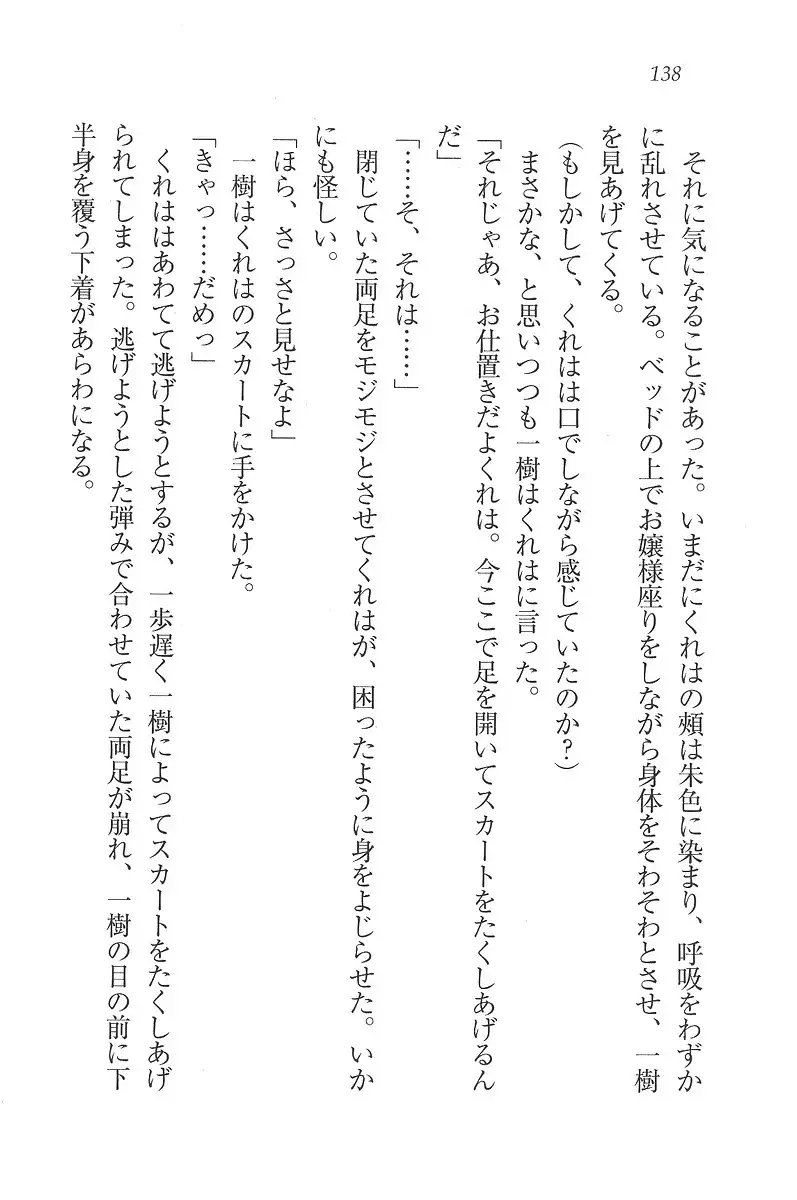 138
それに気になることがあった。いまだにくれはの頰は朱色に染まり、呼吸をわずか
に乱れさせている。ベッドの上でお嬢様座りをしながら身体をそわそわとさせ、一樹
を見あげてくる。
(もしかして、くれはは口でしながら感じていたのか?)
まさかな、と思いつつも一樹はくれはに言った。
「それじゃあ、お仕置きだよくれは。今ここで足を開いてスカートをたくしあげるん
だ」
「……そ、それは……」
閉じていた両足をモジモジとさせてくれはが、困ったように身をよじらせた。いか
にも怪しい。
「ほら、さっさと見せなよ」
一樹はくれはのスカートに手をかけた。
「きゃっ……だめっ」
くれははあわてて逃げようとするが、一歩遅く一樹によってスカートをたくしあげ
られてしまった。逃げようとした弾みで合わせていた両足が崩れ、一樹の目の前に下
半身を覆う下着があらわになる。